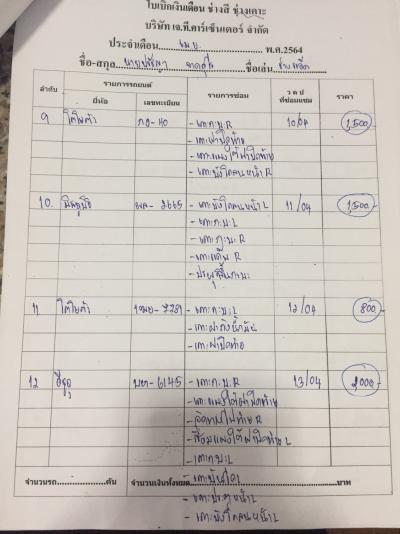 ใบเบิกเงินเดือน ช่างสี ช่างเคาะ
บริษัท เจ.ที.คาร์เซ็นเตอร์ จำกัด
ประจำเดือน เม.ย. พ.ศ.2564
ชื่อ-สกุล นาย ชื่อเล่น
ลำดับ รายการรถยนต์ รายการซ่อม ว ด ป ที่ซ่อมแซม ราคา
ยี่ห้อ เลขทะเบียน
9 โตโยต้า กอ-40 - เคาะก.บ.R 10/04 1,500
- เคาะฝาปิดท้าย
- เคาะแผงใต้ฝาปิดท้าย
- เคาะบังโคลนหน้า R
10. มิตซูบิชิ ผค-2665 - เคาะบังโคลนหน้า L 11/04 1,500
- เคาะก.บ.L
- เคาะก.บ.R
- เคาะแค้ม R
- ปะผุพื้นกะบะ
11 โตโยต้า - เคาะก.บ.L 12/04 800
- เคาะฝาถังน้ำมัน
- เคาะฝาปิดท้าย
12 อีซูซุ บห-6145 - เคาะก.บ.R 13/04 2000
- เคาะแผงใต้ฝาปิดท้าย
- R
- เชื่อมแผงใต้ฝาปิดท้าย L
- เคาะก.บ.L
จำนวนรถ คัน จำนวนเงินทั้งหมด บาท
- เคาะบันได
- เคาะประตูหน้า L
- เคาะบังโคลนหน้า L